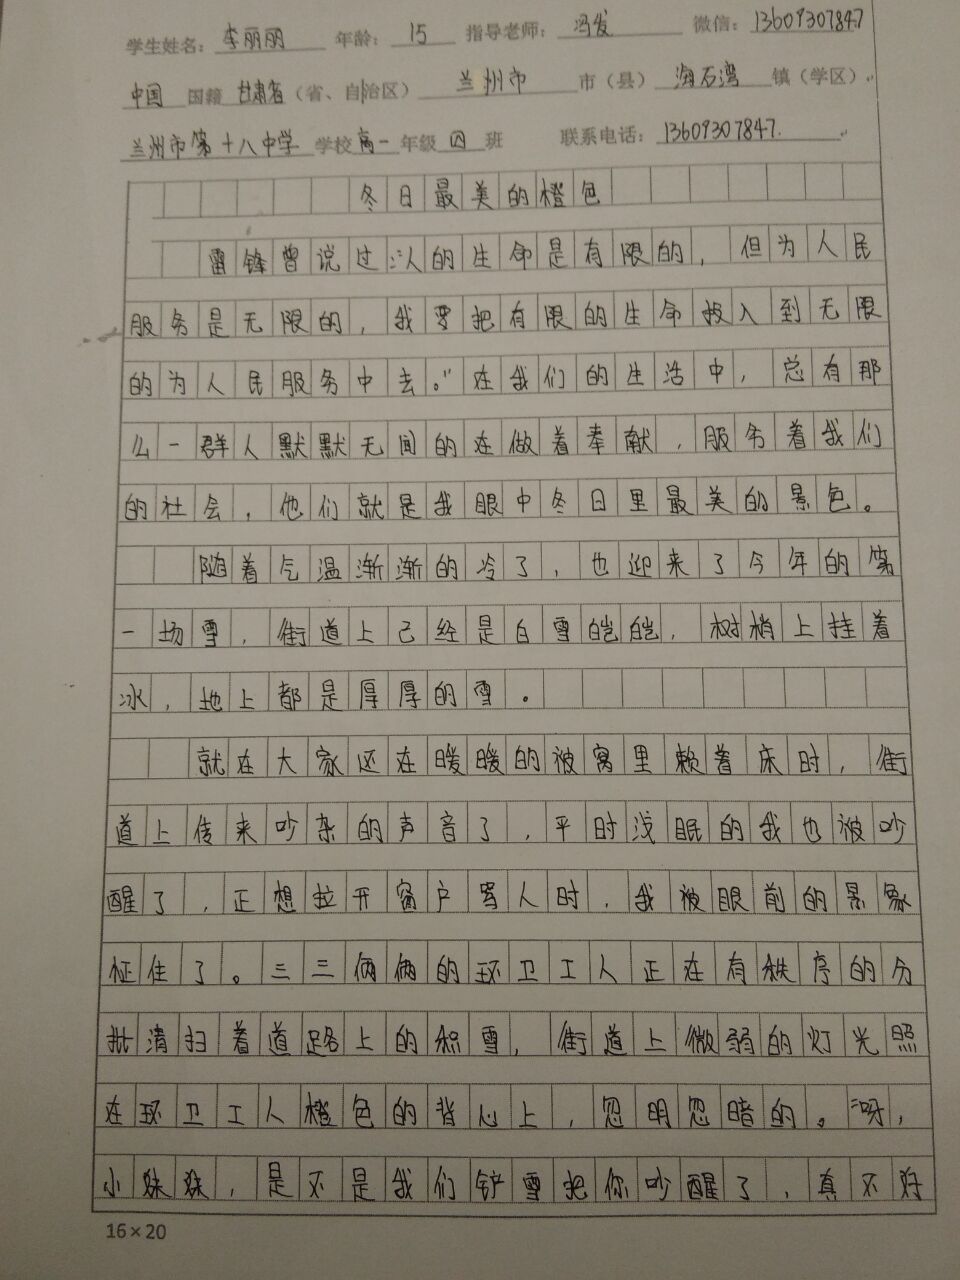 学生姓名：李丽丽 年龄：15 指导老师：冯发 微信：13609307847
中国 国籍 甘肃省（省、自治区） 兰州市 市（县） 海石湾 镇（学区）
兰州市第十八中学 学校 高一 年级 四 班 联系电话：13609307847.
冬日最美的橙色
雷锋曾说过：“人的生命是有限的，但为人民
服务是无限的，我要把有限的生命投入到无限
的为人民服务中去。”在我们的生活中，总有那
么一群人默默无闻的在做着奉献，服务着我们
的社会，他们就是我眼中冬日里最美的景色。
随着气温渐渐的冷了，也迎来了今年的第
一场雪，街道上己经是白雪皑皑，树梢上挂着
冰，地上都是厚厚的雪。
就在大家还在暖暖的被窝里赖着床时，街
道上传来吵杂的声音了，平时浅眠的我也被吵
醒了，正想拉开窗户骂人时，我被眼前的景象
怔住了。三三俩俩的环卫工人正在有秩序的分
批清扫着道路上的积雪，街道上微弱的灯光照
在环卫工人橙色的背心上，忽明忽暗的。“呀，
小妹妹，是不是我们铲雪把你吵醒了，真不好
16×20